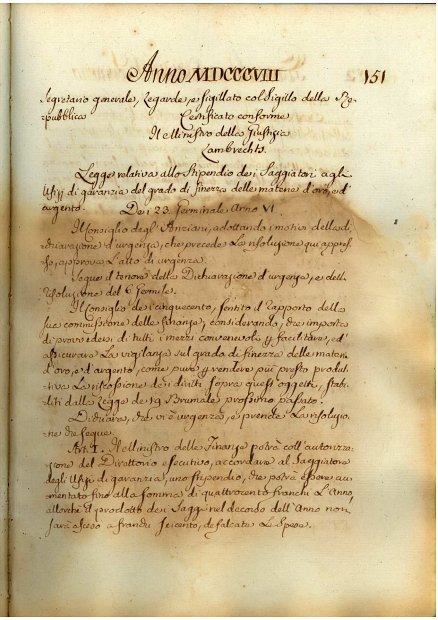 Anno MDCCCVIII 151
Segretario generale, Legarde, e sigillato col Sigillo della Re-
pubblica Certificato conforme
Il Ministro della Giustizia
Lambrechts.
Legge relativa allo Stipendio dei Saggiatori agli
Ufizj di garanzia del grado di finezza delle materie d'oro, ed'
argento.
Dei 23. Germinale Anno VI.
Il Consiglio degl'Anziani, adottando i motivi della di-
chiarazione d'urgenza, che precede La risoluzione qui appres-
so, approva L'atto di urgenza.
Segue il tenore della Dichiarazione d'urgenza, e della
Risoluzione del 6 Germile.
Il Consiglio dei cinquecento, sentito il rapporto della
sua commissione delle finanze, considerando, che importa
di provvedersi di tutti i mezzi convenevoli p facilitare, ed'
assicurare La vigilanza sul grado di finezza delle materie
d'oro, e d'argento, come pure p rendere più presto produt-
tiva La riscossione dei diritti sopra questi oggetti, stabi-
liti dalla Legge de 19 Brumale prossimo passato.
Dichiara, che vi è urgenza, e prende La risoluzio-
ne che segue.
Art. I. Il Ministro delle Finanze potrà coll'autorizza-
zione del Direttorio esecutivo, accordare al Saggiatore
degli Ufizj di garanzia, uno stipendio, che potrà essere au-
mentato fino alla somma di quattrocento franchi L'Anno,
allorchè il prodotto dei Saggi nel decorso dell'Anno non
sarà asceso a franchi seicento, defalcate Le spese.